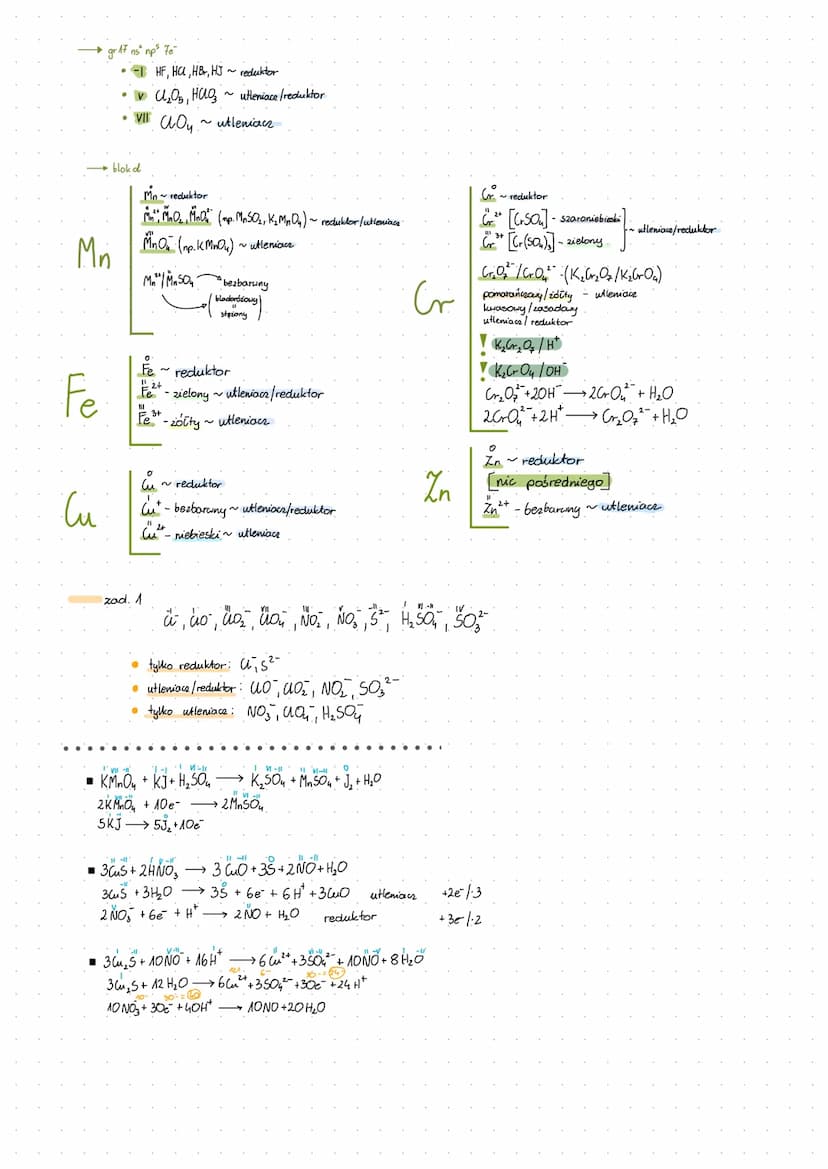 → gr 17 ns² np⁵ 7e⁻
• -I HF, HCl, HBr, HJ ~ reduktor
• V Cl₂O₅, HClO₃ ~ utleniacz/reduktor
• VII ClO₄ ~ utleniacz
→ blok d
Mn
0 Mn ~ reduktor
II IV VI Mn²⁺, MnO₂, MnO₄²⁻ (np. MnSO₄, K₂MnO₄) ~ reduktor/utleniacz
VII MnO₄⁻ (np. KMnO₄) ~ utleniacz
Mn²⁺/MnSO₄ → bezbarwny
(bladoróżowy
=
stężony)
Cr
0 Cr ~ reduktor
II Cr²⁺ [CrSO₄] - szaroniebieski
III Cr³⁺ [Cr(SO₄)₃] - zielony
~ utleniacz/reduktor
Cr₂O₇²⁻/CrO₄²⁻ · (K₂Cr₂O₇/K₂CrO₄)
pomarańczowy/żółty - utleniacz
kwasowy/zasadowy
utleniacz/reduktor
! K₂Cr₂O₇ / H⁺
! K₂CrO₄ / OH⁻
Cr₂O₇²⁻ + 2OH⁻ → 2CrO₄²⁻ + H₂O
2CrO₄²⁻ + 2H⁺ → Cr₂O₇²⁻ + H₂O
Fe
0 Fe ~ reduktor
II Fe²⁺ - zielony ~ utleniacz/reduktor
III Fe³⁺ - żółty ~ utleniacz
Cu
0 Cu ~ reduktor
I Cu⁺ - bezbarwny ~ utleniacz/reduktor
II Cu²⁺ - niebieski ~ utleniacz
Zn
0 Zn ~ reduktor
[nic pośredniego]
II Zn²⁺ - bezbarwny ~ utleniacz
zad. 1
Cl⁻, ClO⁻, ClO₂⁻, ClO₄⁻, NO₂⁻, NO₃⁻, S²⁻, H₂SO₄, SO₃²⁻
• tylko reduktor: Cl⁻, S²⁻
• utleniacz/reduktor: ClO⁻, ClO₂⁻, NO₂⁻, SO₃²⁻
• tylko utleniacz: NO₃⁻, ClO₄⁻, H₂SO₄
▪ KMnO₄ + KJ + H₂SO₄ → K₂SO₄ + MnSO₄ + J₂ + H₂O
2KMnO₄ + 10e⁻ → 2MnSO₄
5KJ → 5J₂ + 10e⁻
▪ 3CuS + 2HNO₃ → 3CuO + 3S + 2NO + H₂O
3CuS + 3H₂O → 3S + 6e⁻ + 6H⁺ + 3CuO utleniacz +2e⁻/·3
2NO₃⁻ + 6e⁻ + H⁺ → 2NO + H₂O reduktor +3e⁻/·2
▪ 3Cu₂S + 10NO⁻ + 16H⁺ → 6Cu²⁺ + 3SO₄²⁻ + 10NO + 8H₂O
3Cu₂S + 12H₂O → 6Cu²⁺ + 3SO₄²⁻ + 30e⁻ + 24H⁺
10NO₃⁻ + 30e⁻ + 40H⁺ → 10NO + 20H₂O